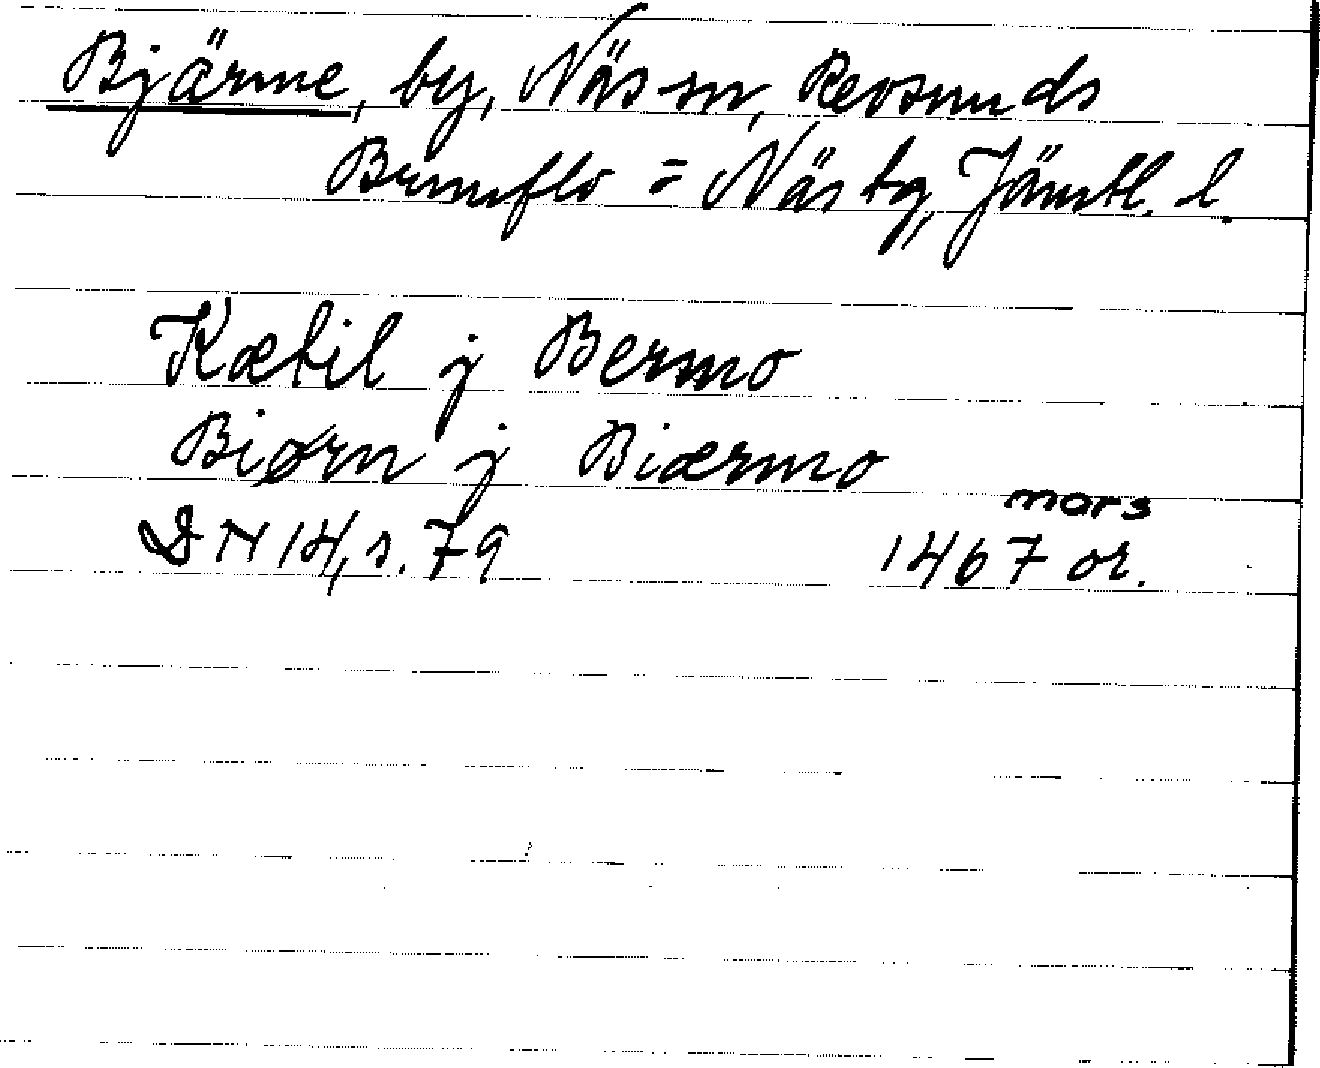 Bjärme, by, Näs sn, Revsunds
Brunflo = Näs tg, Jämtl. l.
Kætil j Bermo
Biørn j Biærmo
mars
DN 14, s. 79 1467 or.